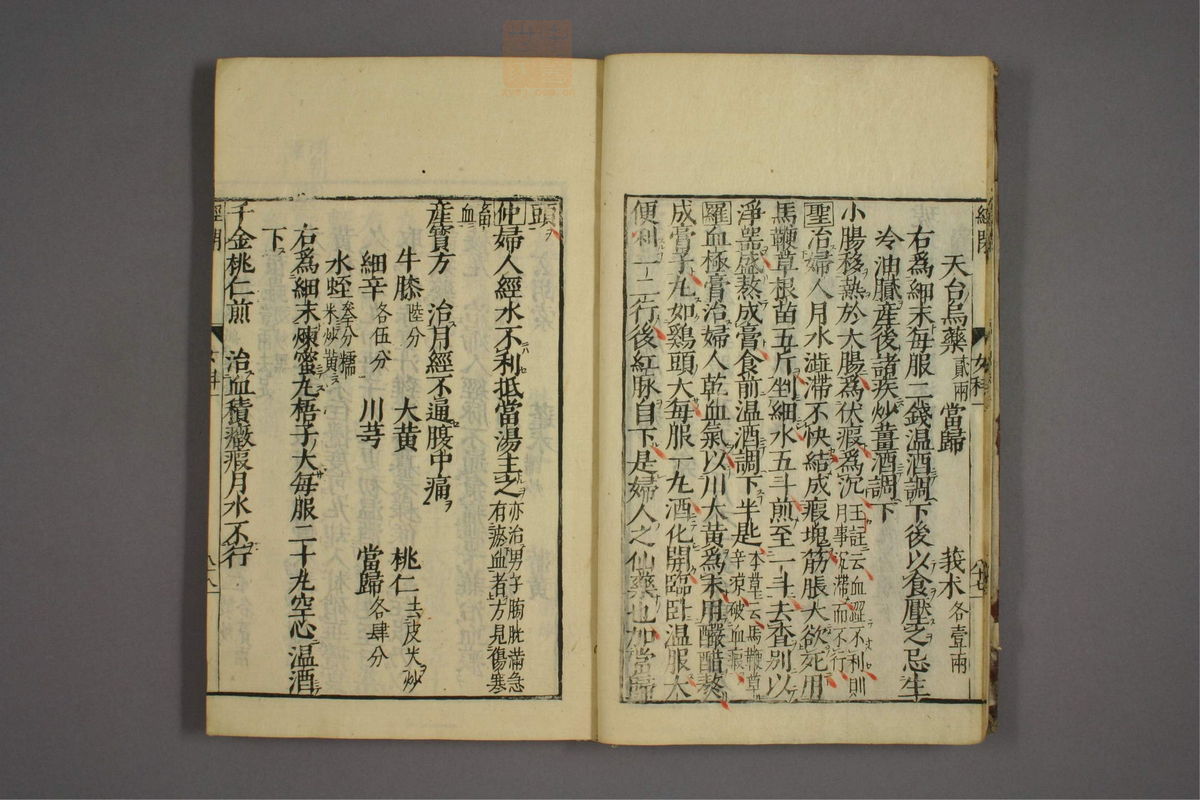 天台烏藥貳兩 當歸 莪朮各壹兩
右為細末每服二錢温酒調下後以食壓之忌生
冷油膩産後諸疾炒薑酒調下
小腸移熱於大腸為伏瘕為沉王註云血澀不利則月事沉滯而不行
聖治婦人月水澁滯不快結成瘕塊筋脹大欲死用
馬鞭草根苗五斤剉細水五斗煎至一斗去查别以
淨器盛熬成膏食前温酒調下半匙本草云馬鞭草辛凉破血瘕
羅血極膏治婦人乾血氣以川大黃為末用釅醋熬
成膏子丸如鷄頭大每服一丸酒化開臨卧温服大
便利一二行後紅脉自下是婦人之仙藥也加當歸
女科一
頭
仲婦人經水不利抵當湯主之亦治男子膀胱滿急有瘀血者方見傷寒
畜血
産寳方 治月經不通腹中痛
牛膝陸分 大黃 桃仁去皮尖炒
細辛各伍分 川芎 當歸各肆分
水蛭叁分糯米炒黃
右為細末煉蜜丸梧子大每服二十丸空心温酒
下
千金桃仁煎 治血積癥瘕月水不行